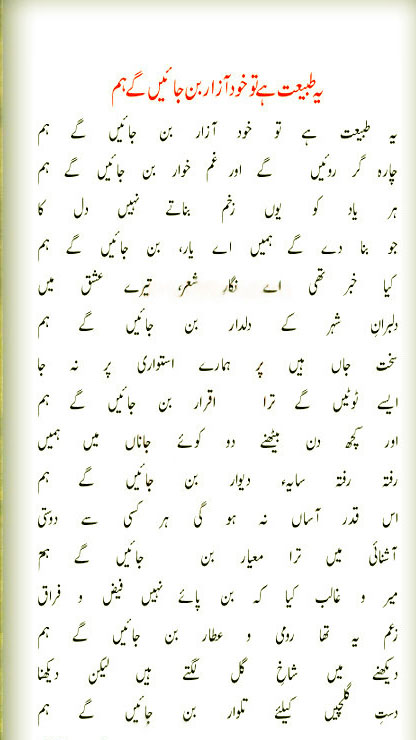 یہ طبیعت ہے تو خود آزار بن جائیں گے ہم
یہ طبیعت ہے تو خود آزار بن جائیں گے ہم
چارہ گر روئیں گے اور غم خوار بن جائیں گے ہم
ہر یاد کو یوں زخم بناتے نہیں دل کا
جو بنا دے گے ہمیں اے یار، بن جائیں گے ہم
کیا خبر تھی اے نگار شعر، تیرے عشق میں
دلبرانِ شہر کے دلدار بن جائیں گے ہم
سخت جاں ہیں پر ہمارے استواری پر نہ جا
ایسے ٹوٹیں گے ترا اقرار بن جائیں گے ہم
اور کچھ دن بیٹھنے دو کوئے جاناں میں ہمیں
رفتہ رفتہ سایہء دیوار بن جائیں گے ہم
اس قدر آساں نہ ہو گی ہر کسی سے دوستی
آشنائی میں ترا معیار بن جائیں گے ہم
میر و غالب کیا کہ بن پائے نہیں فیض و فراق
زعم یہ تھا رومی و عطار بن جائیں گے ہم
دیکھنے میں شاخِ گل لگتے ہیں لیکن دیکھنا
دستِ گلچیں کیلئے تلوار بن جائیں گے ہم